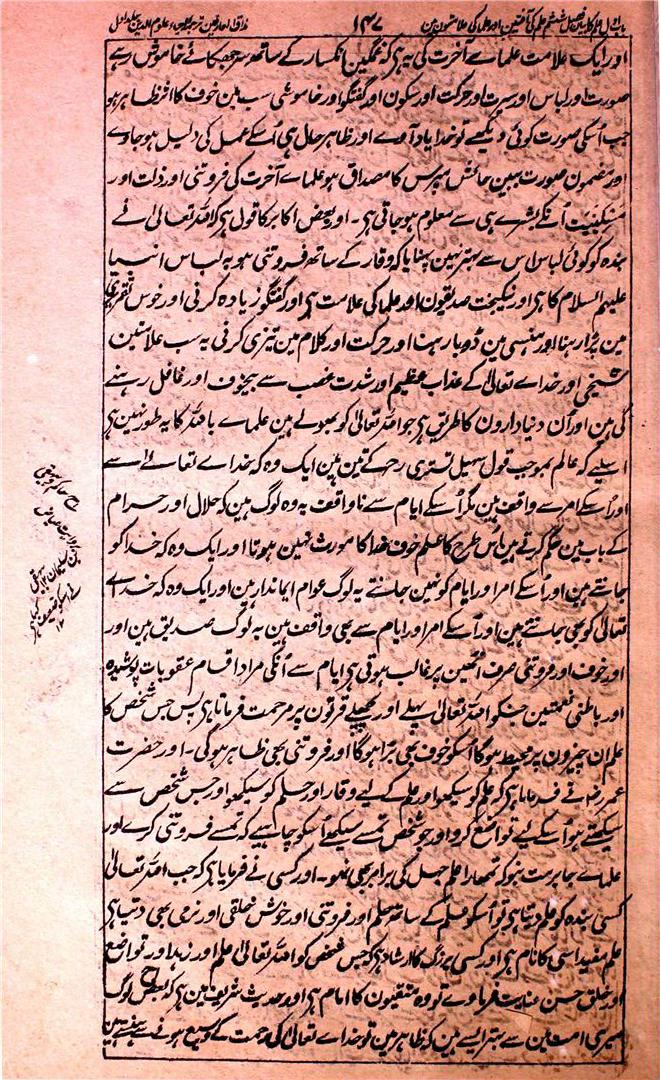 باب اول علم کا بیان فصل ششم علم کی آفتین اور علما کی علامتون مین ۱۴۷ مذاق العارفین ترجمہ احیاء علوم الدین جلد اول
اور ایک علامت علماے آخرت کی یہ ہی کہ غمگین انکسار کے ساتھ سر جھکائے خاموش رہے
صورت اور لباس اور سیرت اور حرکت اور سکون اور گفتگو اور خاموشی سب مین خوف کا اثر ظاہر ہو
جب اُسکی صورت کوئی دیکھے تو خدا یاد آوے اور ظاہر حال ہی اُسکے عمل کی دلیل ہو جاوے
اور مضمون صورت ببین حالش مپرس کا مصداق ہو علماے آخرت کی فروتنی اور ذلت اور
مسکینیت اُنکے بشرے ہی سے معلوم ہو جاتی ہی ۔ اور بعض اکابر کا قول ہی کہ اللہ تعالیٰ نے
بندہ کو کوئی لباس اس سے بہتر نہین پہنایا کہ وقار کے ساتھ فروتنی ہو یہ لباس انبیا
علیہم السلام کا ہی اور نیکبخت صدیقون اور علما کی علامت ہی اور گفتگو زیادہ کرنی اور خوش تقریری
مین پڑا رہنا اور ہنسی مین ڈوبا رہنا اور حرکت اور کلام مین تیزی کرنی یہ سب علامتین
شیخی اور خداے تعالیٰ کے عذاب عظیم اور شدت غضب سے بیخوف اور غافل رہنے
کی ہین اور اُن دنیادارون کا طریق ہی جو اللہ تعالیٰ کو بھولے ہین علماے باللہ کا یہ طور نہین ہی
اسلیے کہ عالم بموجب قول سہیل تستری رح کے تین ہین ایک وہ کہ خداے تعالےٰ سے
اور اُسکے امر سے واقف ہین مگر اُسکے ایام سے ناواقف یہ وہ لوگ ہین کہ حلال اور حرام
کے باب مین حکم کرتے ہین اس طرح کا علم خوف خدا کا مورث نہین ہوتا اور ایک وہ کہ خدا کو
جانتے ہین اور اُسکے امر اور ایام کو نہین جانتے یہ لوگ عوام ایماندار ہین اور ایک وہ کہ خداے
تعالیٰ کو بھی جانتے ہین اور اُسکے امر اور ایام سے بھی واقف ہین یہ لوگ صدیق ہین اور
اور خوف اور فروتنی صرف انھین پر غالب ہوتی ہی ایام سے اُنکی مراد اقسام عقوبات پوشیدہ
اور باطنی نعمتین جنکو اللہ تعالیٰ پہلے اور پچھلے قرنون پر مرحمت فرماتا ہی پس جس شخص کا
علم ان چیزون پر محیط ہوگا اُسکو خوف بھی بڑا ہوگا اور فروتنی بھی ظاہر ہوگی ۔ اور حضرت
عمر رضہ نے فرمایا ہی کہ علم کو سیکھو اور علم کے لیے وقار اور حلم کو سیکھو اور جس شخص سے
سیکھتے ہو اُسکے لیے تواضع کرو اور جو شخص تمسے سیکھے اُسکو چاہیے کہ تمسے فروتنی کرے اور
علماے جابر مت بنو کہ تمھارا علم جہل کی برابر بھی نہو ۔ اور کسی نے فرمایا ہی کہ جب اللہ تعالیٰ
کسی بندہ کو علم دیتا ہی تو اُسکو علم کے ساتھ حلم اور فروتنی اور خوش خلقی اور نرمی بھی دیتا ہی
علم مفید اسی کا نام ہی اور کسی بزرگ کا ارشاد ہی کہ جس شخص کو اللہ تعالیٰ علم اور زہد اور تواضع
اور خلق حسن عنایت فرماوے تو وہ متقیون کا امام ہی اور حدیث شریف مین ہی کہ بعض لوگ
میری امت مین سے بہتر ایسے ہین کہ ظاہر مین تو خداے تعالیٰ کی رحمت کے وسیع ہونے سے ہنستے ہین